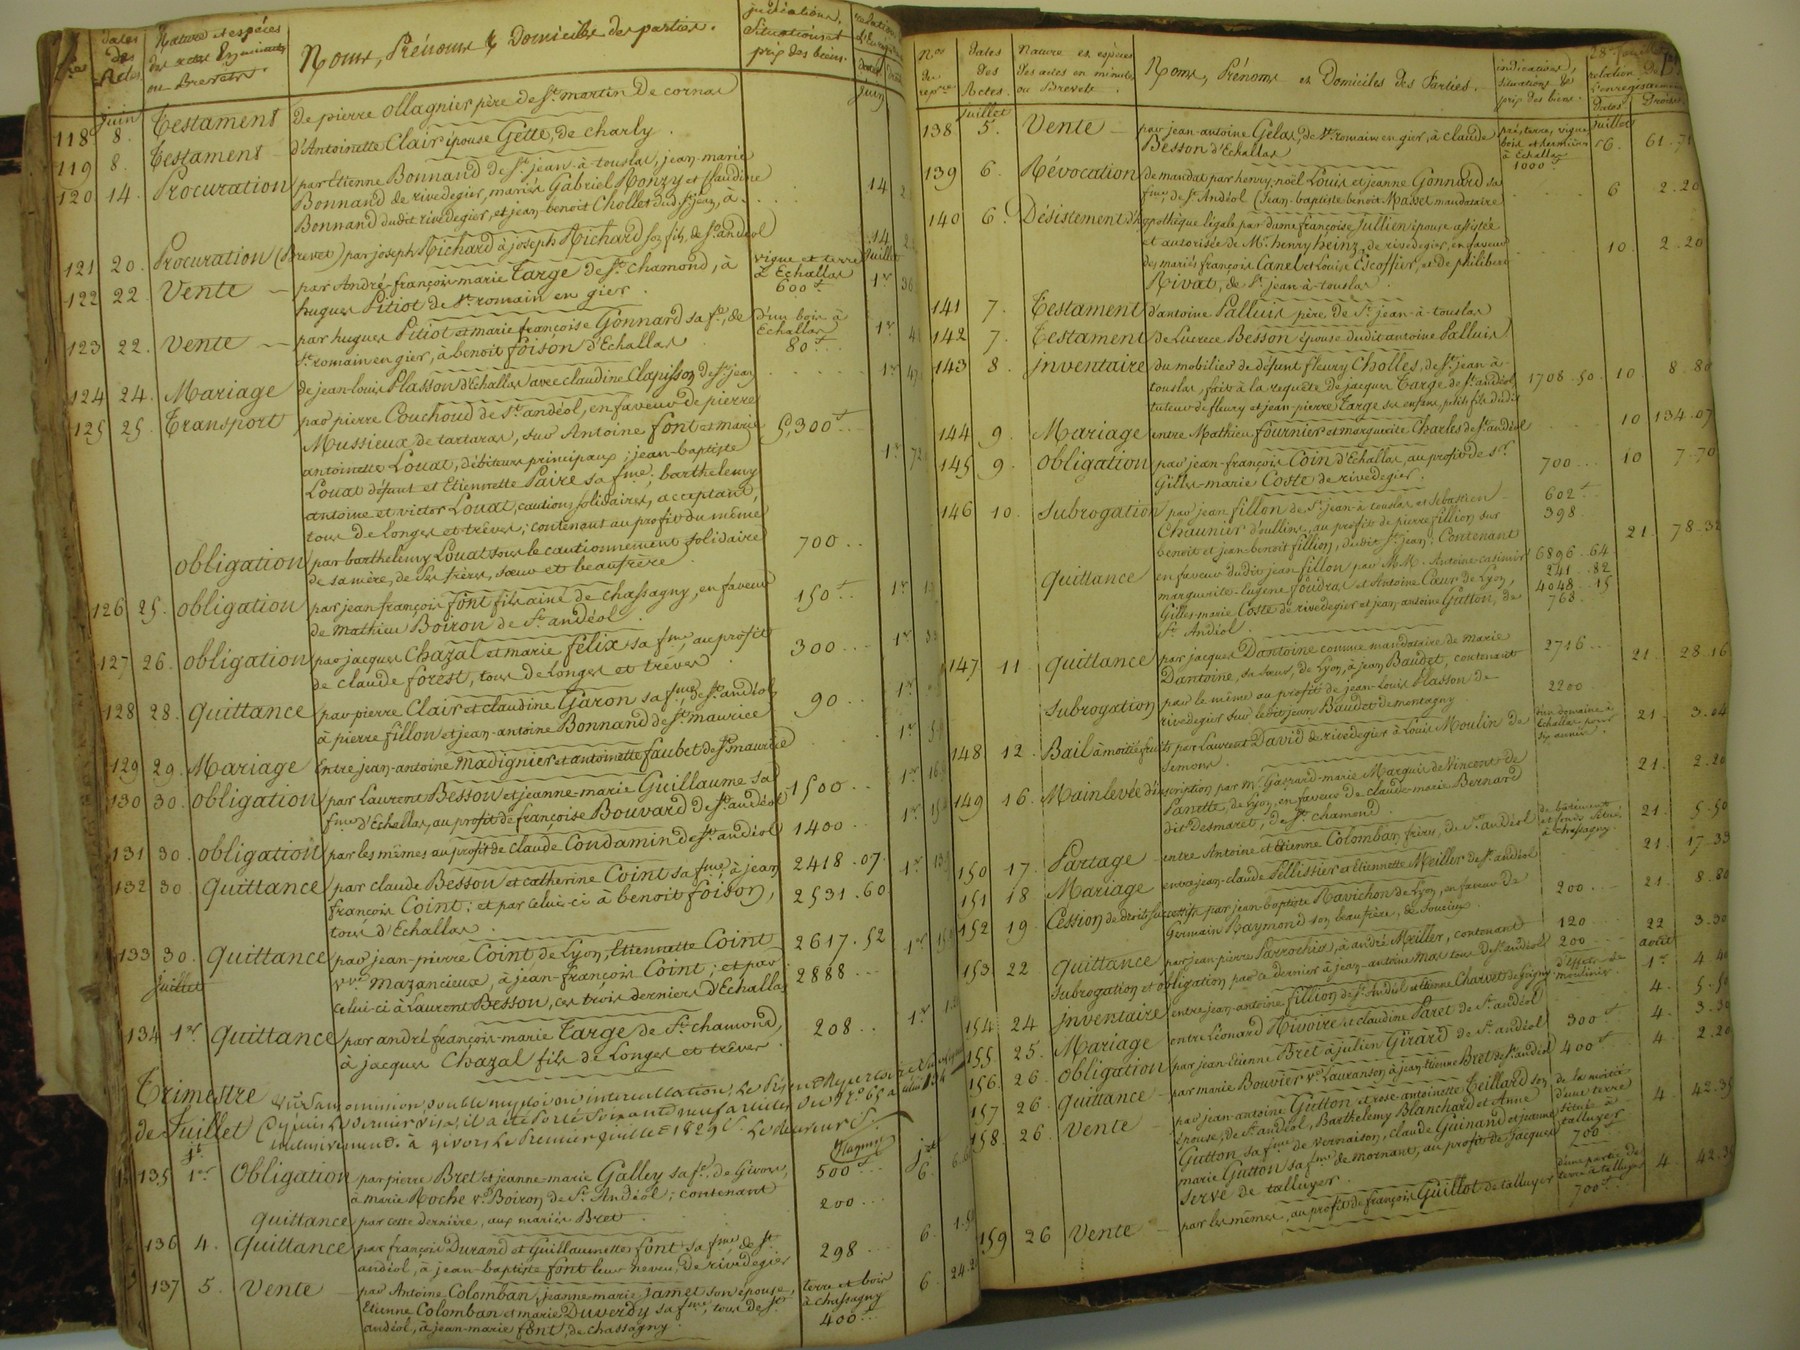 dates des Actes
Nature et espèces des actes En minutes ou Brevets
Noms, Prénoms & Domiciles des parties.
indications, Situations et prix des biens
juin
118 8. Testament De pierre Ollagnier père de St. martin De cornas
119 8. Testament d'Antoinette Clair épouse Gette, de charly.
120 14. Procuration par Etienne Bonnand de St. jean-à-touslas, jean-marie
Bonnand de rivedegier, mariés Gabriel Ronzy et Claudine
Bonnand dudit rivedegier, et jean-benoit Chollet dud. St. jean, à . . . 14
121 20. Procuration (Brevet) par joseph Richard à joseph Richard son fils, de St. andéol 14
juillet
122 22. Vente par André-françois-marie Targe de St. chamond, à vigne et terre
hugues Pitiot de St. romain en gier. à Echallas 600tt 1er
123 22. Vente par hugues Pitiot et marie françoise Gonnard sa fe., de d'un bois à
St. romain en gier, à benoit foison d'Echallas Echallas 80tt 1er
124 24. Mariage de jean-louis Plasson d'Echallas avec claudine Clapisson de St. jean 1er
125 25. Transport par pierre Couchoud de St. andéol, en faveur de pierre
Mussieux de tartaras, sur Antoine font et marie 5,300tt
antoinette Louat, débiteurs principaux; jean-baptiste 1er 72
Louat défunt et Etiennette Paire sa fme; barthelemy
antoine et victor Louat, cautions solidaires, acceptant,
tous de Longes et trèves; contenant au profit du même
obligation par barthelemy Louat sous le cautionnement solidaire 700 . .
de sa mère, de ses frères, sœur et beaufrère
126 25. obligation par jean françois font fils ainé de chassagny, en faveur 150tt 1er
de Mathieu Boiron de St. andéol
127 26. obligation par jacques Chazal et marie félix sa fme, au profit 300 . . . 1er
de claude forest, tous de Longes et trèves
128 28. quittance par pierre Clair et claudine Garon sa fme, de St. andéol, 90 . . . 1er
à pierre fillon et jean-antoine Bonnand de St. maurice
129 29. Mariage Entre jean-antoine Madignier et antoinette faubet de St. maurice 1er
130 30. obligation par Laurent Besson et jeanne-marie Guillaume sa 1500 . . 1er
fme d'Echallas, au profit de françoise Bouvard de St. andéol
131 30. obligation par les mêmes au profit de claude Condamin de St. andéol 1400 . . 1er
132 30. Quittance par claude Besson et catherine Coint sa fme, à jean 2418 . 07 . 1er
françois Coint; et par celui-ci à benoit foison, 2531 . 60
tous d'Echallas
133 30. Quittance par jean-pierre Coint de Lyon, Etiennette Coint 2617 . 52 1er
vve Mazancieux, à jean-françois Coint; et par 2888 . . .
celui-ci à Laurent Besson, ces trois derniers d'Echallas
juillet
134 1er Quittance par andré françois-marie Targe de St. chamond, 208 . . 1er
à jacques Chazal fils de Longes et trèves
Trimestre
de Juillet
inclusivement. à givors Le Premier juillet 1829. Le Receveur
jt.
135 1er Obligation par pierre Bret et jeanne-marie Galley sa fe. de Givors, 500tt jet 6.
à marie Roche ve. Boiron de St. Andéol; contenant
quittance par cette dernière, aux mariés Bret 200 . . .
136 4. quittance par françois Durand et Guillaumette font sa fme, de St. 298 . . . 6
andéol, à jean-baptiste font leur neveu, de rivedegier
137 5. Vente par Antoine Colomban, jeanne-marie jamet son épouse, terre et bois 6 24.2
Etienne Colomban et marie Duverdy sa fme, tous de St. à chassagny
andéol, à jean-marie font, de chassagny. 400tt
Nos. de repre. Dates des Actes. Nature et espèces des actes en minutes ou Brevets.
Noms, Prénoms et Domiciles des Parties.
indications, situations et prix des biens.
relation De l'enregistrement Dates Droits
juillet
138 5. Vente par jean-antoine Gelas, de St. romain en gier, à claude prés, terre, vigne juillet
Besson d'Echallas bois à Echallas 1000tt 6. 61.71
139 6. Révocation de mandat par henry-noël Louis et jeanne Gonnard sa
fme, de St. Andéol (Jean-baptiste benoit Masset mandataire 6 2.20
140 6. Désistement d'hypothèque légale par dame françoise Jullien épouse assistée
et autorisée de Mr. henry heinz, de rivedegier, en faveur
des mariés françois Canel et Louise Escoffier, et de philibert 10. 2.20
Rivat, de St. jean-à-touslas.
141 7. Testament d'antoine Palluis père de St. jean-à-touslas
142 7. Testament de Lucrece Besson épouse dudit antoine Palluis
143 8. inventaire du mobilier de défunt fleury Cholles, de St. jean à-
touslas, fait à la requête de jacques Targe de St. andéol, 1708 . 50 . 10 8.80
tuteur de fleury et jean-pierre Targe ses enfans, petits fils dud.
144 9. Mariage entre Mathieu fournier et marguerite Charles de St. andéol 10 134.07
145 9. obligation par jean-françois Coin d'Echallas, au profit de Sr. 700 . . . 10 7.70
Gilles-marie Coste de rivedegier.
146 10. Subrogation par jean fillon de St. jean-à touslas et Sébastien 602tt
Chaunier d'oullins, au profit de pierre fillion sur 398.
benoit et jean-benoit fillion, dudit St. jean; Contenant 21. 78.32
quittance en faveur dudit jean fillon par MM. Antoine-casimir 6896 . 64
marguerite-Eugène foudras et Antoine Cœur de Lyon, 241 . 82
Gilles-marie Coste de rivedegier et jean-antoine Gutton, de 4048 . 15
St. Andéol. 768.
147 11. quittance par jacques Dantoine comme mandataire de marie 2716 . . . 21. 28.16
Dantoine, sa sœur, de Lyon, à jean Baudet, contenant
subrogation par le même au profit de jean-louis Plasson de 2200
rivedegier sur ledit jean Baudet de montagny.
148 12. Bail à moitié fruits par Laurent David de rivedegier à Louis Moulin de d'un domaine à 21 3.04
Simons. Echallas pour six années.
149 16. Mainlevée d'inscription par Mr. Gaspard-marie Marquis de Vincent de 21. 2.20
Panette, de Lyon, en faveur de claude-marie Bernard
dit Desmaret, de St. chamond
150 17. Partage entre Antoine et Etienne Colomban frères, de St. andéol de bâtiments et fonds situés à chassagny. 21. 5.50
151 18 Mariage entre jean-claude Pellissier et Etiennette Meiller de St. andéol 21. 17.33
152 19. Cession de droits successifs par jean-baptiste Ravichon de Lyon, en faveur de 200 . . . 21. 8.80
Germain Raymond son beaufrère, de Soucieu.
153 22 quittance par jean pierre Parrochia, à andré Meiller, contenant 120 . . 22 3.30
subrogation et obligation par ce dernier à jean-antoine Mas tous de St. andéol 200 . . . août
154 24 Inventaire entre jean-antoine fillion de St. Andéol et Etienne Charvet de Grigny d'effets de 1er 4.40
155 25. Mariage entre Léonard Rivoire et claudine Paret de St. andéol 4. 5.50
156. 26 obligation par jean-Etienne Bret à julien Girard de St. andéol 300tt 4. 3.30
157 26. quittance par marie Bouvier ve. Lauranson, à jean Etienne Bret de St. andéol 400tt 4. 2.20
158. 26. Vente par jean-antoine Gutton et rose-antoinette Teillard son de la moitié
épouse, de St. andéol, Barthelemy Blanchard et Anne d'une terre
Gutton sa fme de vernaison, claude Guinand et jeanne située à 4. 42.35
marie Gutton sa fme de mornant, au profit de jacques taluyer
Servé de talluyer. 700tt
159 26 Vente par les mêmes, au profit de françois Guillot de talluyer d'une partie de terre à talluyer 4. 42.3
700tt